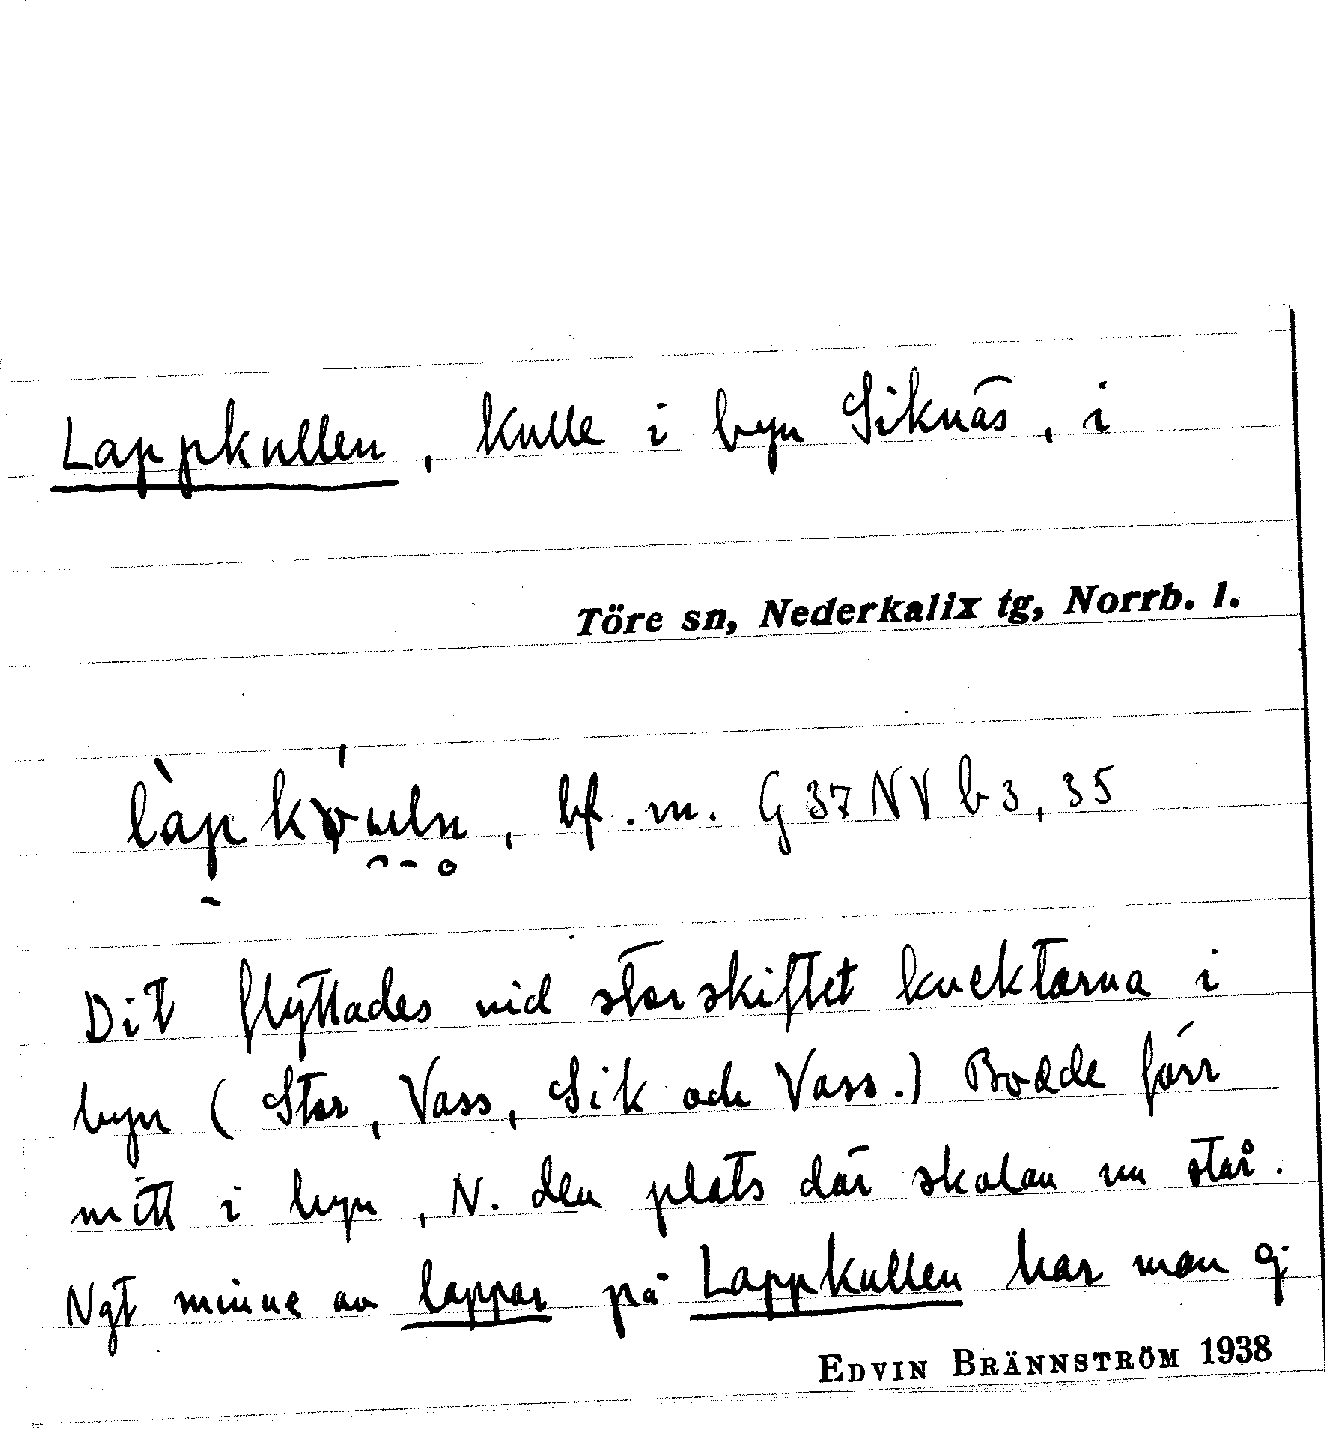 Lappkullen, kulle i byn Siknäs, i
Töre sn, Nederkalix tg, Norrb. l.
bf. m. G 37 NV b 3, 35
Dit flyttades vid storskiftet knektarna i
byn (Stor, Vass, Sik och Vass.) Bodde förr
mitt i byn, N. den plats där skolan nu står.
Ngt minne av lappar på Lappkullen har man ej
EDVIN BRÄNNSTRÖM 1938